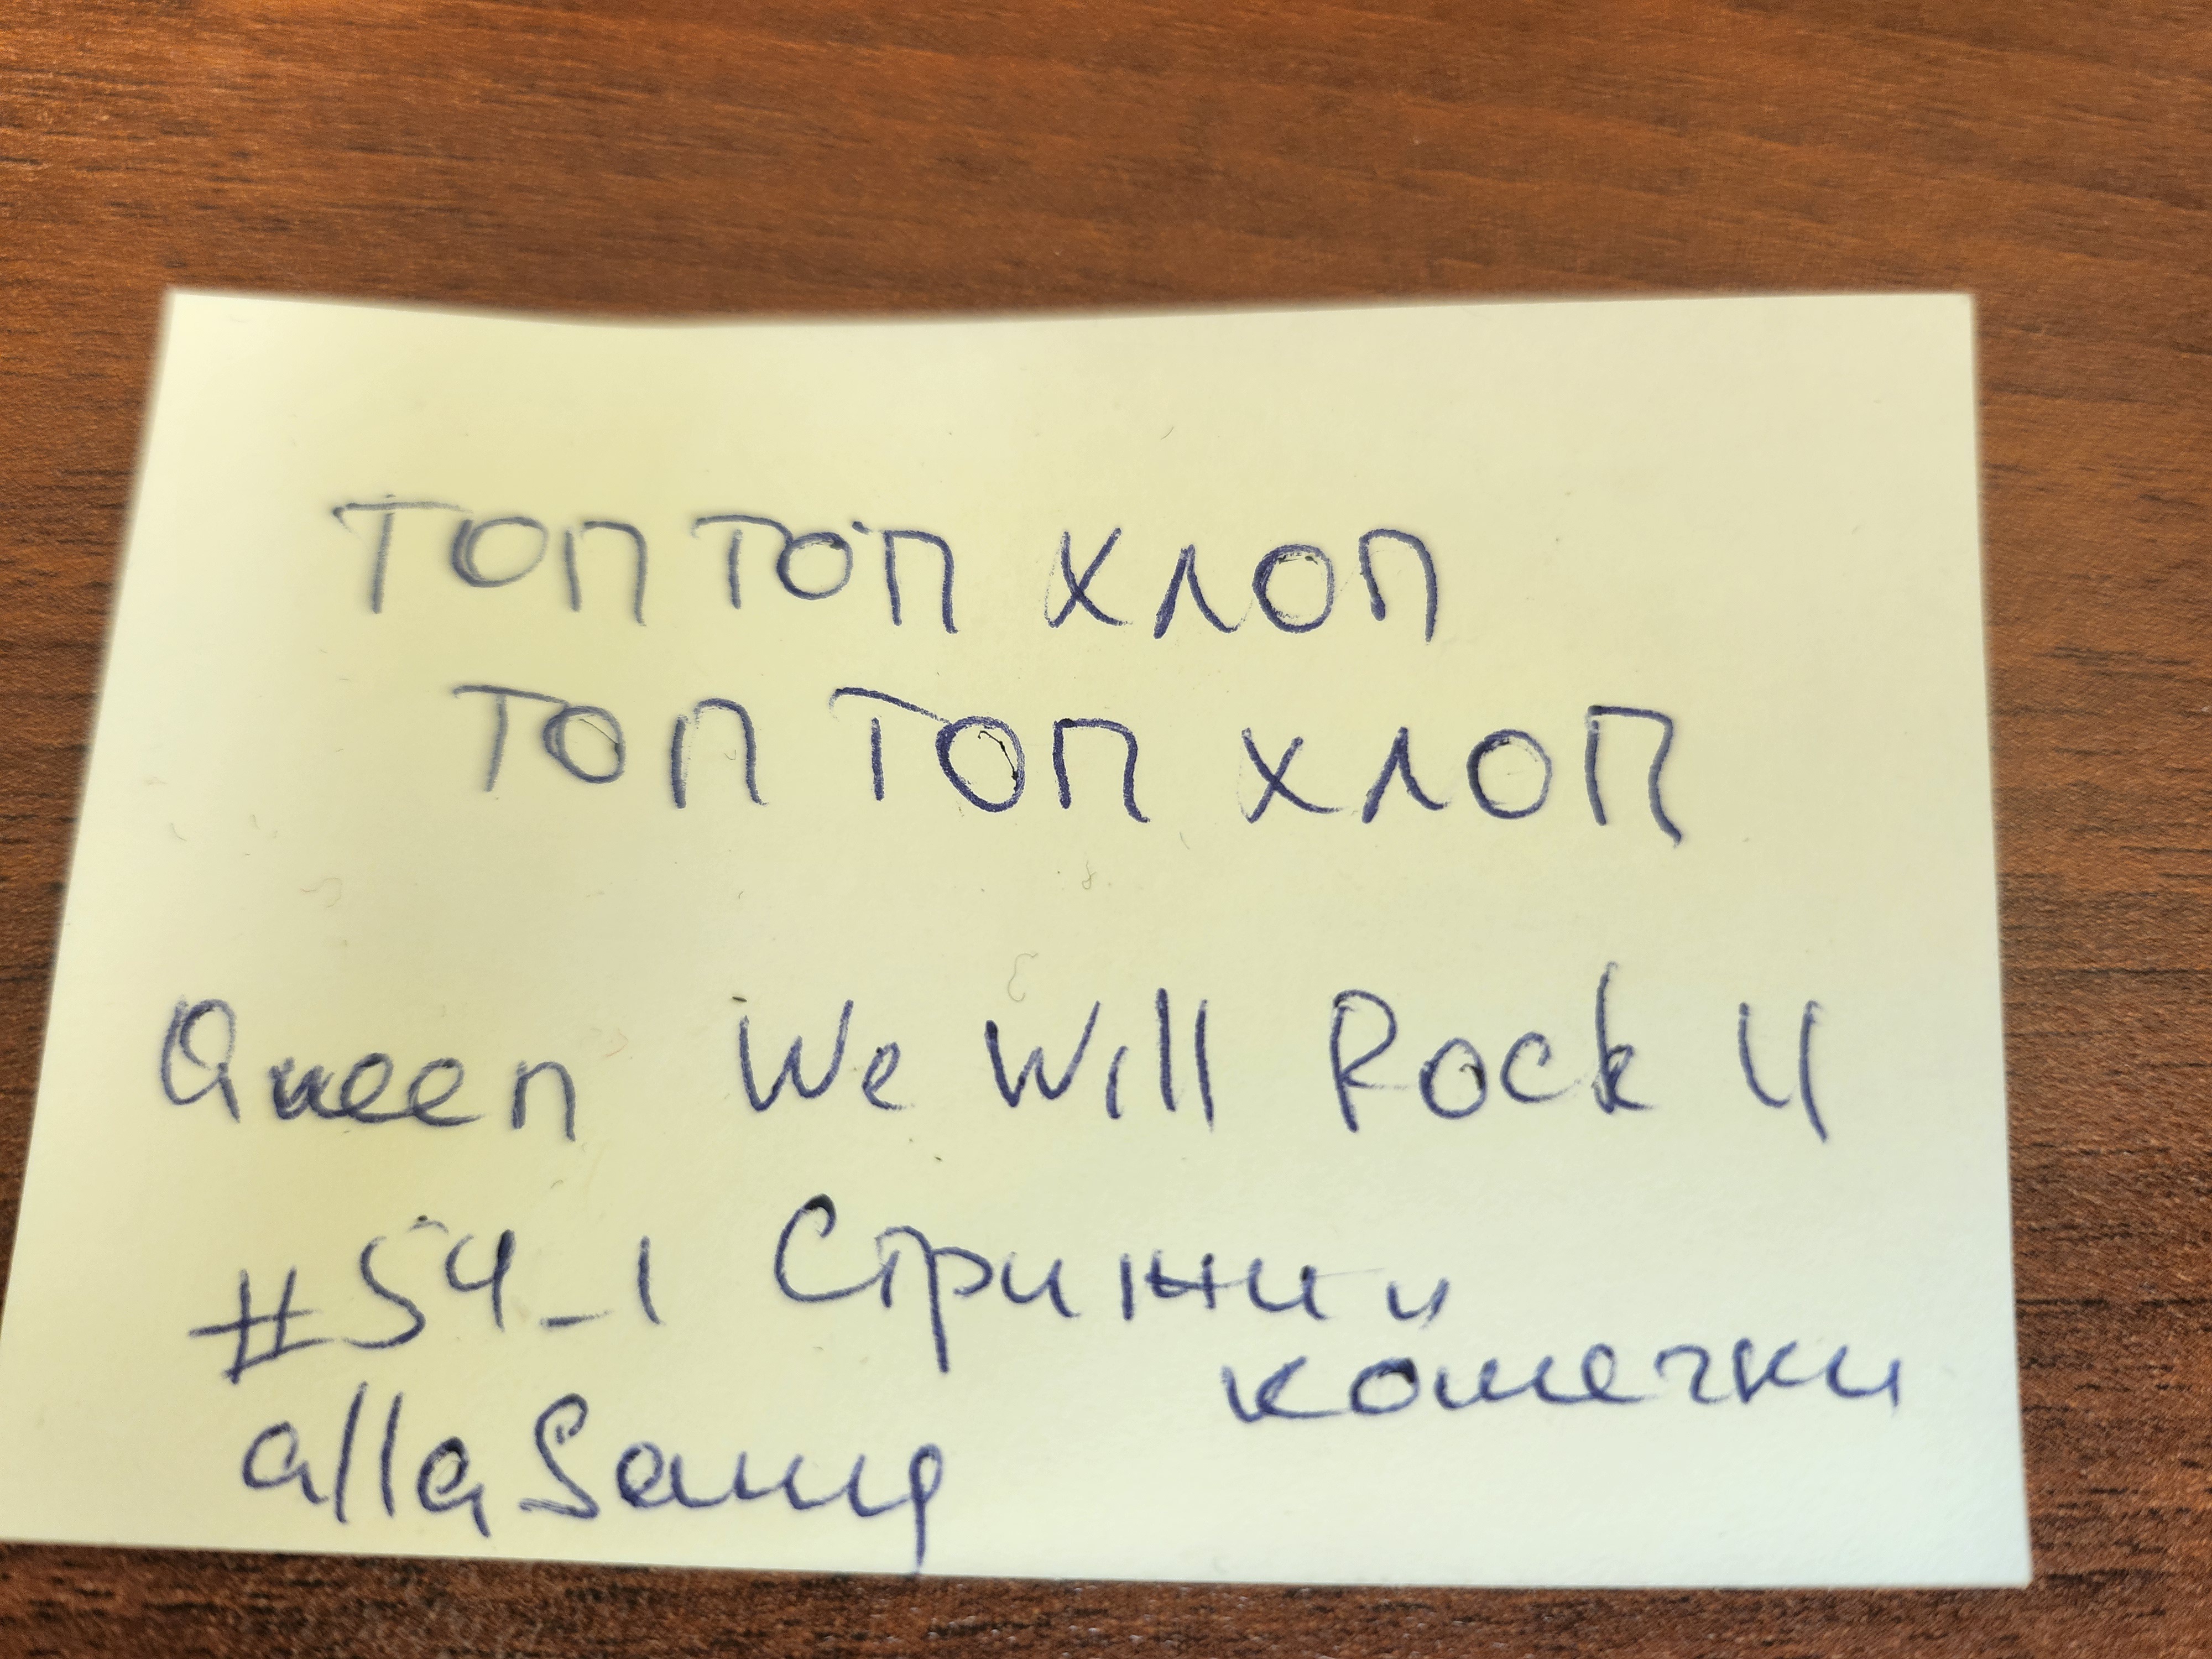 ТОП ТОП ХЛОП
ТОП ТОП ХЛОП
Queen We Will Rock U
#54_1 Стрижи и
кошечки
allaSaung